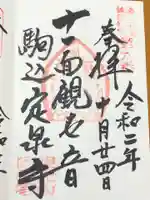 奉拝
令和二年
十月廿四日
十一面観世音
駒込定泉寺